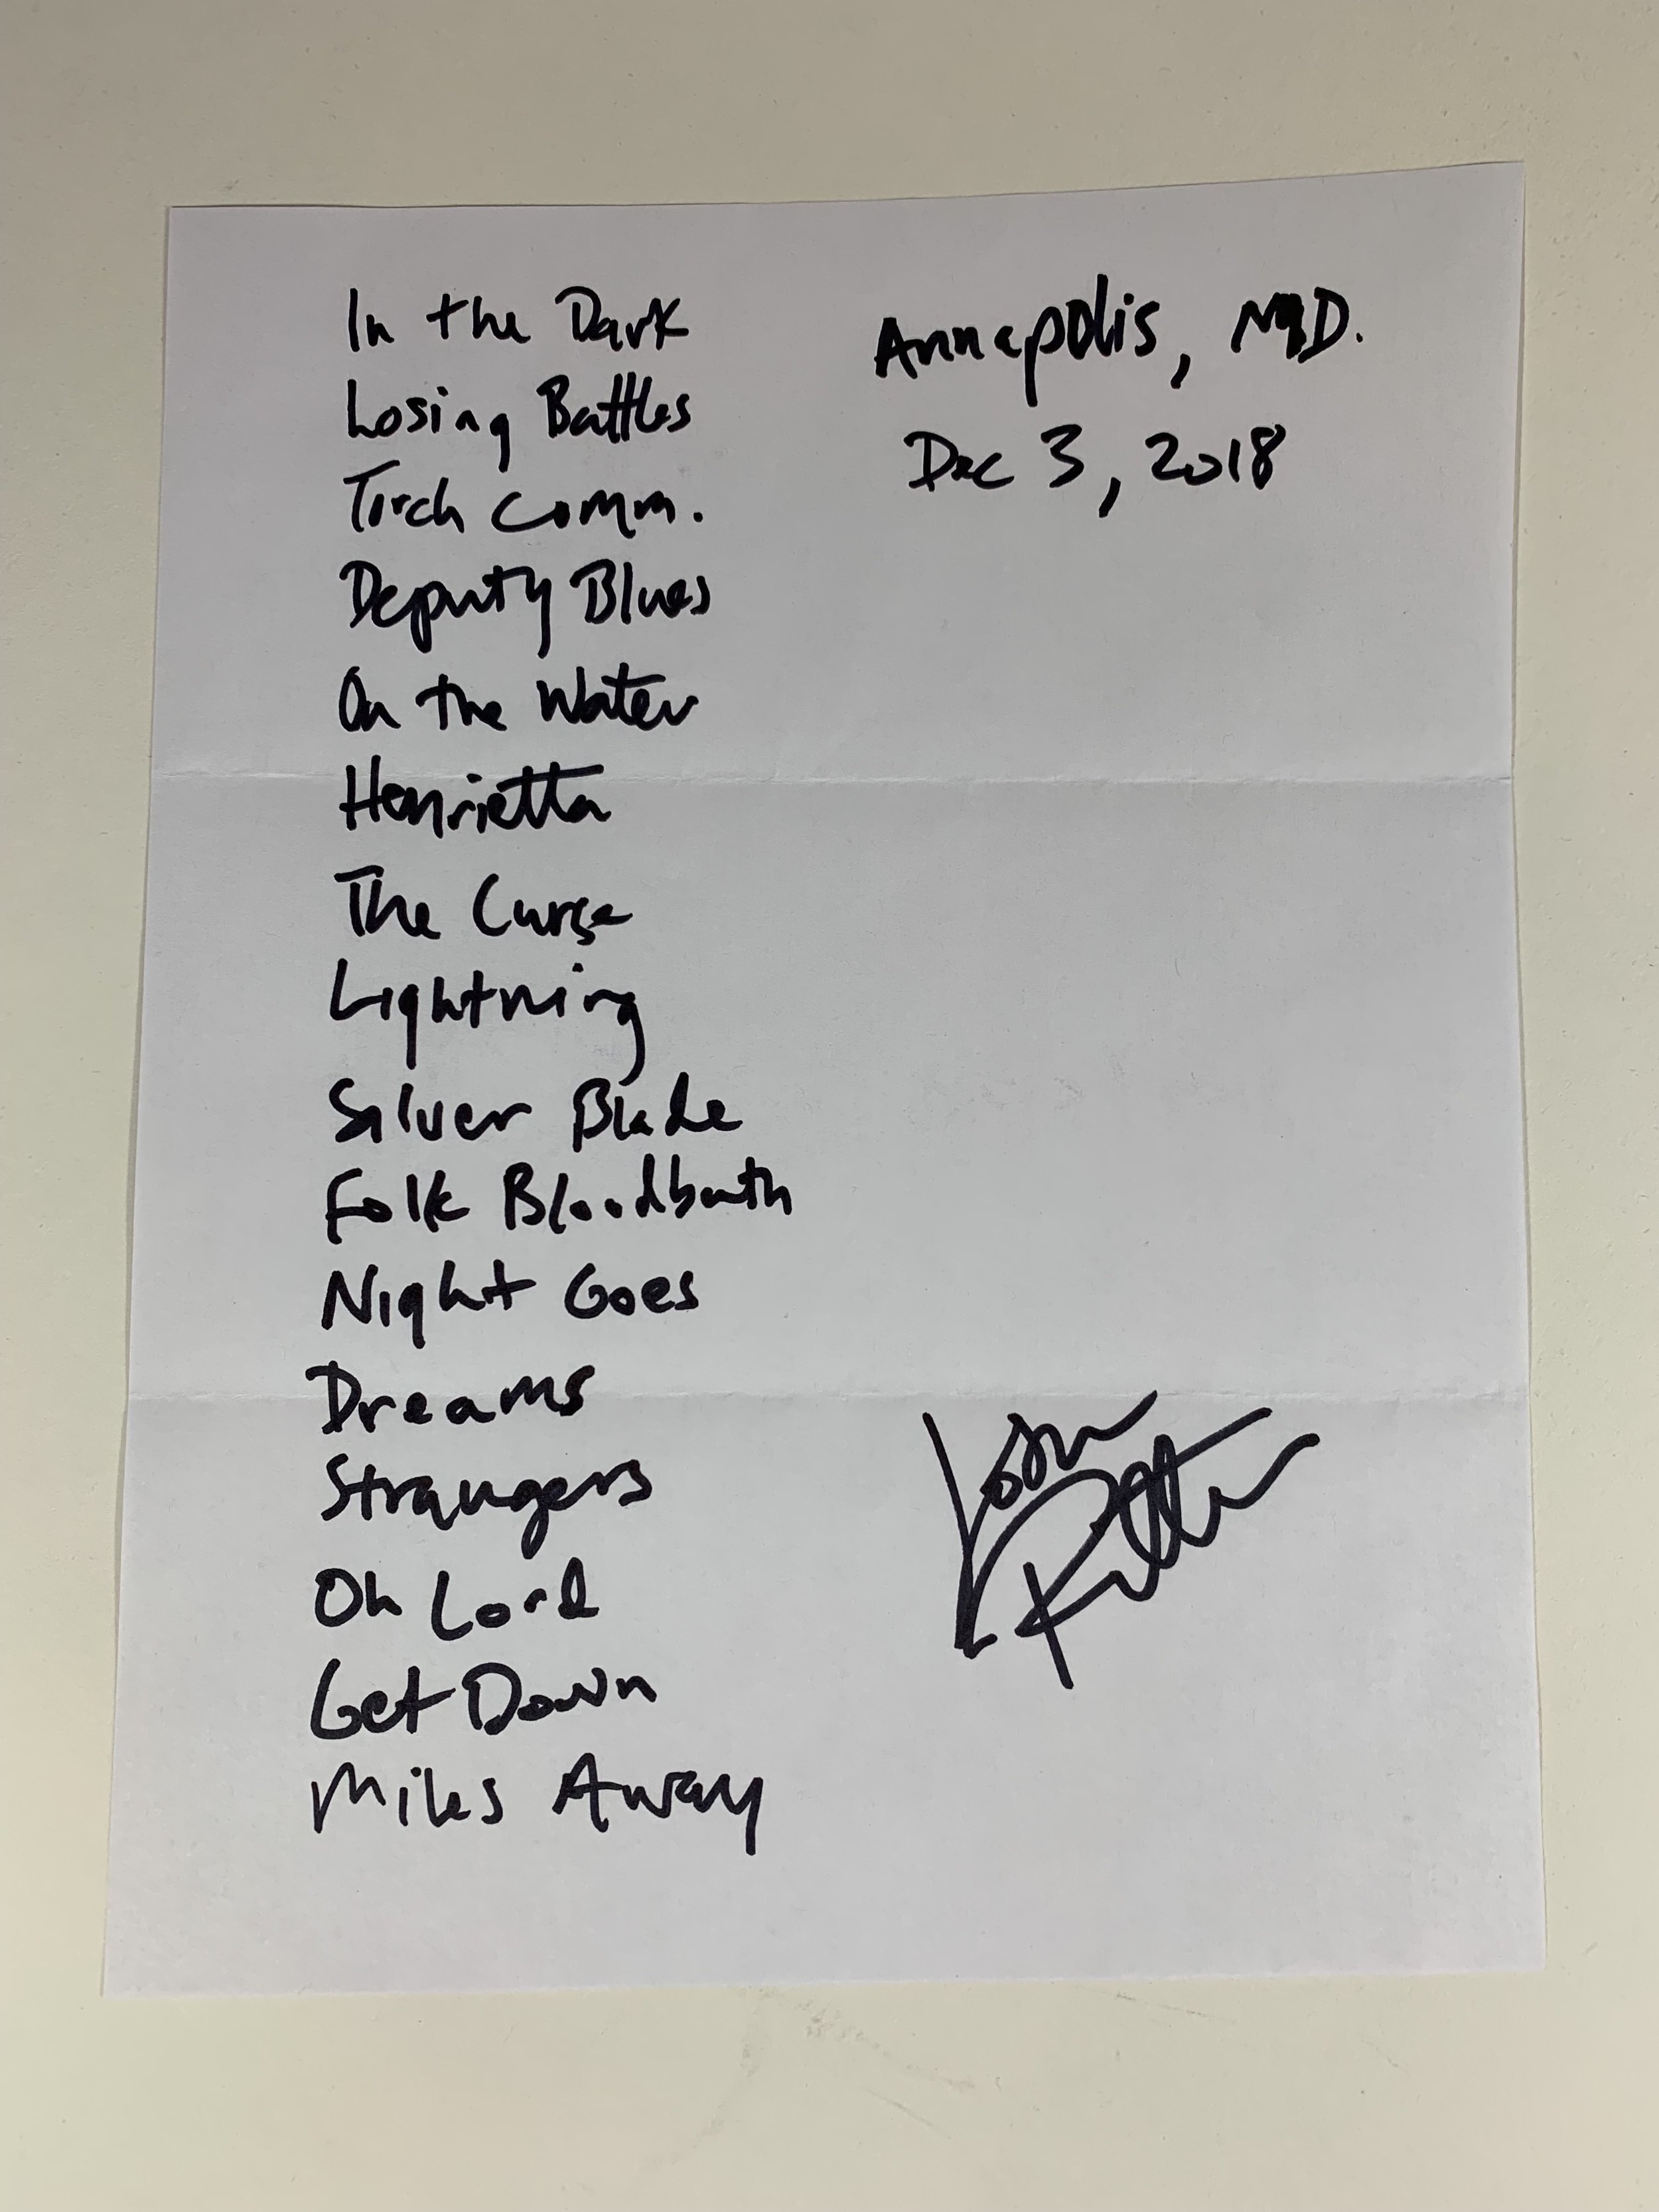 In the Dark
Losing Battles
Torch Comm.
Deputy Blues
On the Water
Henrietta
The Curse
Lightning
Silver Blade
Folk Bloodbath
Night Goes
Dreams
Strangers
Oh Lord
Get Down
Miles Away
Annapolis, MD.
Dec 3, 2018
Josh
Ritter